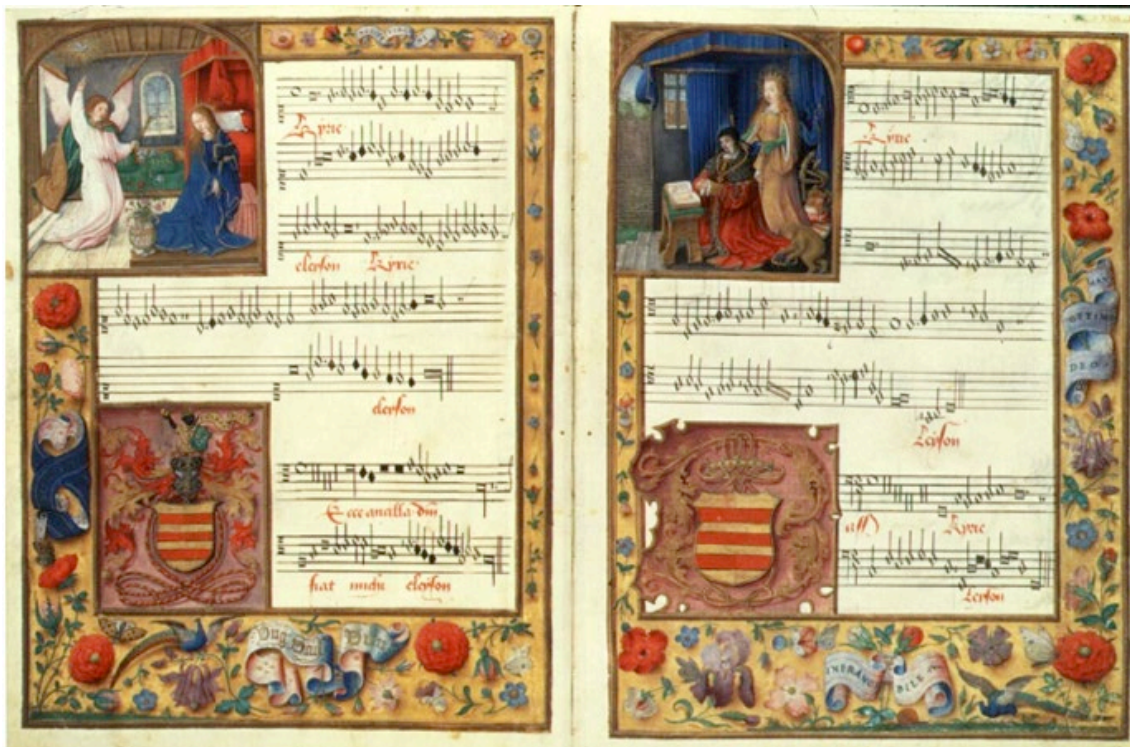 Kyrie
eleyson Kyrie
eleyson
Ecce ancilla dm̄
fiat michi eleyson
Kyrie
OTTIMO
DEO
Leyson
Kyrie
Leyson
BILE